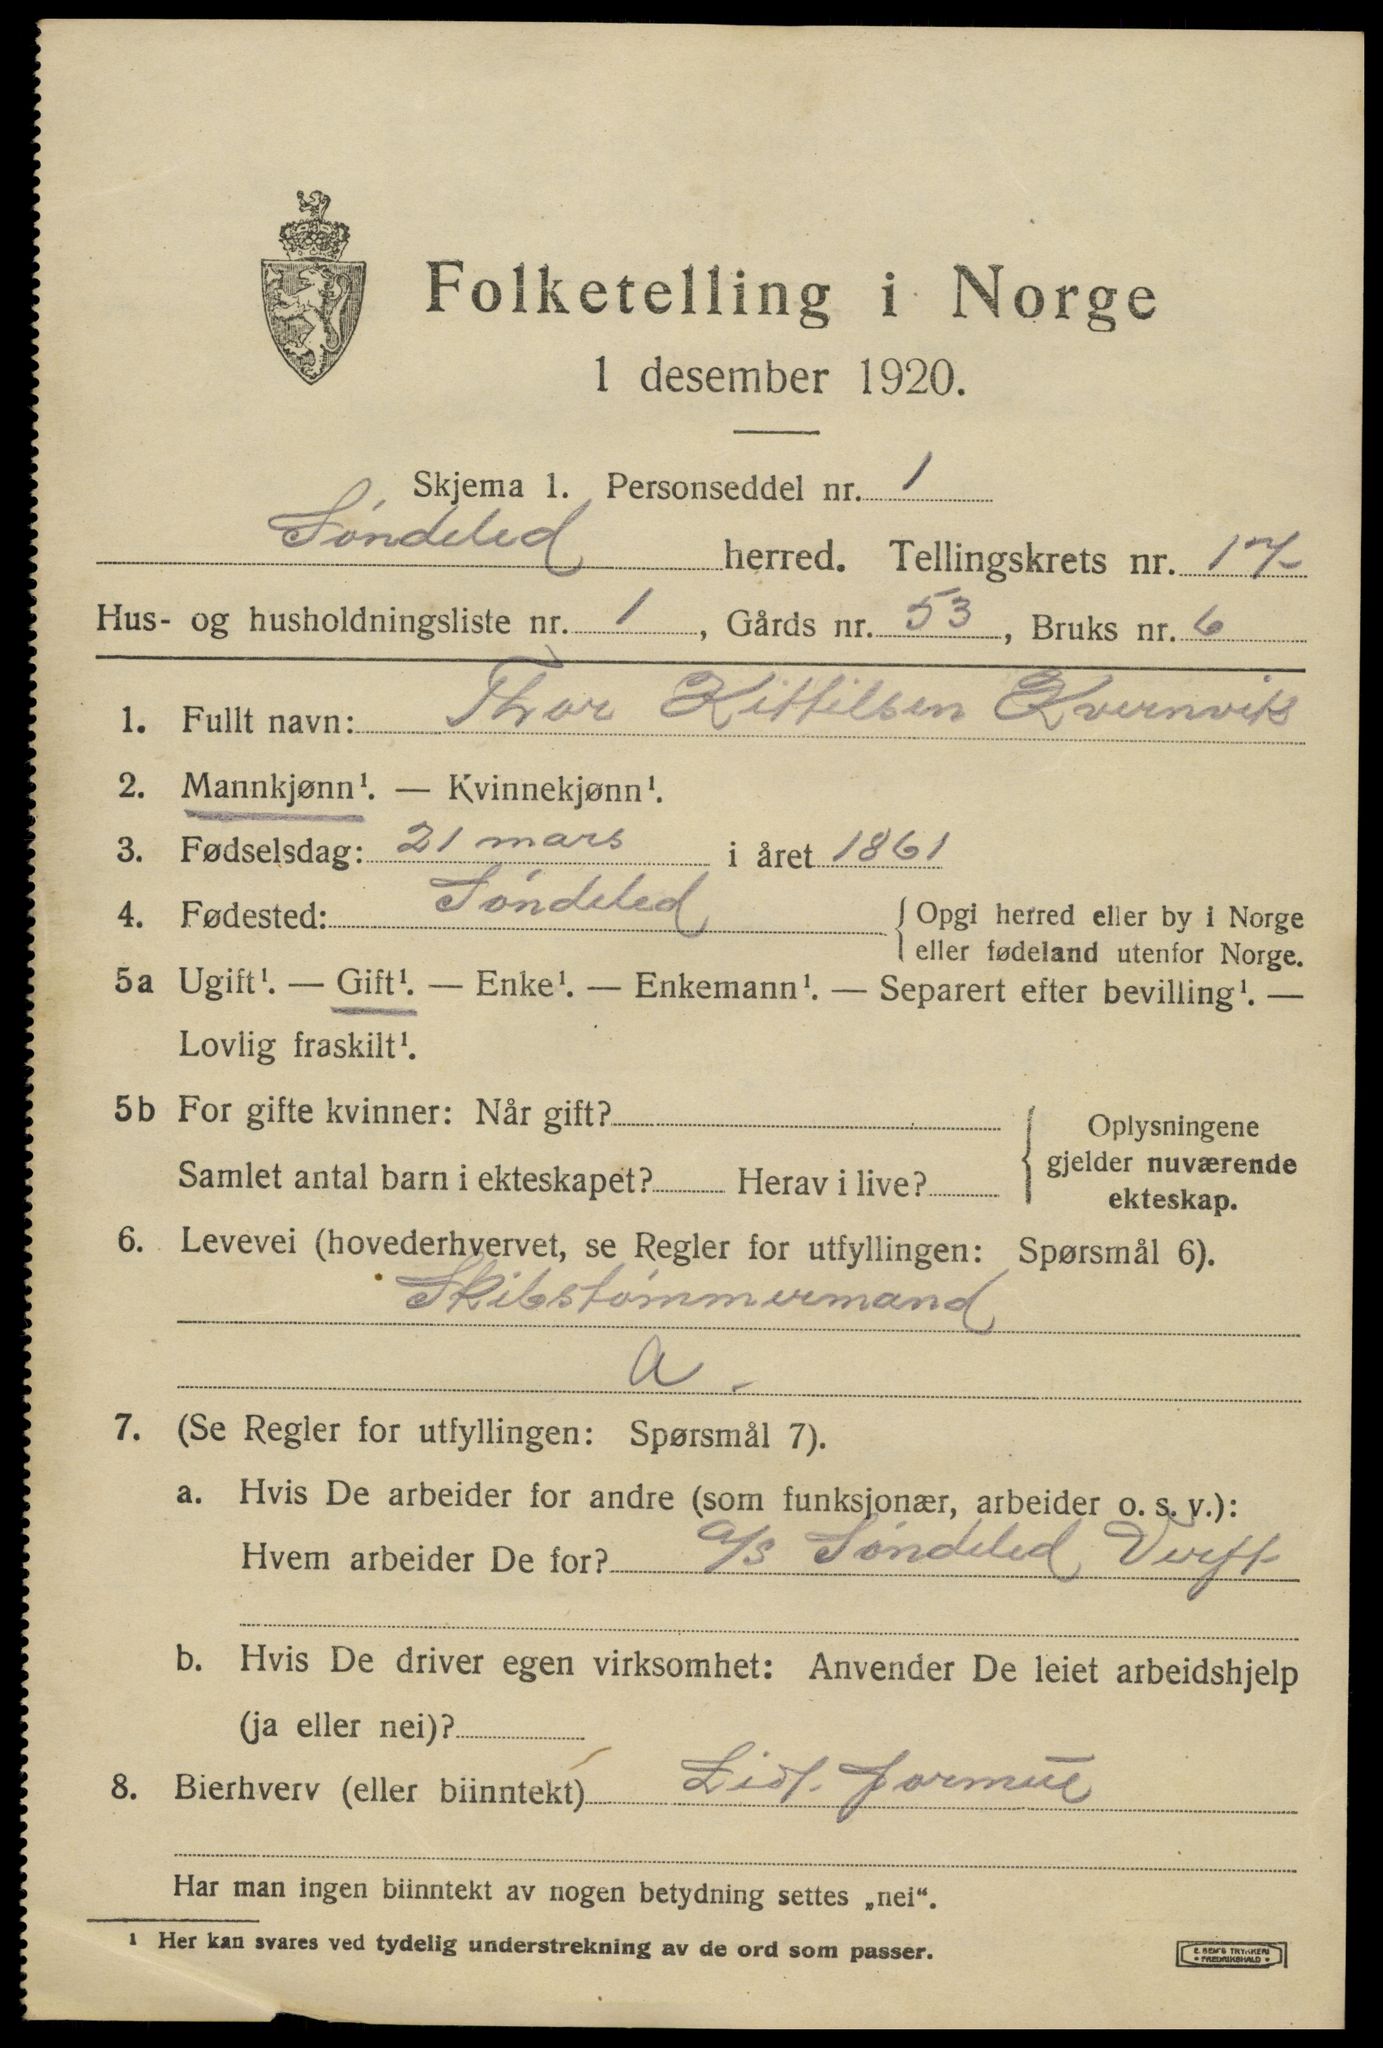 Folketelling i Norge
1 desember 1920.
Skjema 1. Personseddel nr. 1
Søndeled herred. Tellingskrets nr. 17
Hus- og husholdningsliste nr. 1, Gårds nr. 53, Bruks nr. 6
1. Fullt navn: Thor Kittilsen Kvernvik
2. Mannkjønn¹. — Kvinnekjønn¹.
3. Fødselsdag: 21 mars i året 1861
4. Fødested: Søndeled { Opgi herred eller by i Norge
eller fødeland utenfor Norge.
5a Ugift¹. — Gift¹. — Enke¹. — Enkemann¹. — Separert efter bevilling¹. —
Lovlig fraskilt¹.
5b For gifte kvinner: Når gift?
Samlet antal barn i ekteskapet? Herav i live?
{ Oplysningene
gjelder nuværende
ekteskap.
6. Levevei (hovederhvervet, se Regler for utfyllingen: Spørsmål 6).
Skibstømmermand
a.
7. (Se Regler for utfyllingen: Spørsmål 7).
a. Hvis De arbeider for andre (som funksjonær, arbeider o. s. v.):
Hvem arbeider De for? a/s Søndeled Verft
b. Hvis De driver egen virksomhet: Anvender De leiet arbeidshjelp
(ja eller nei)?
8. Bierhverv (eller biinntekt) Lidt formue
Har man ingen biinntekt av nogen betydning settes „nei“.
¹ Her kan svares ved tydelig understrekning av de ord som passer.
E. SEM'S TRYKKERI
• FREDRIKSHALD •